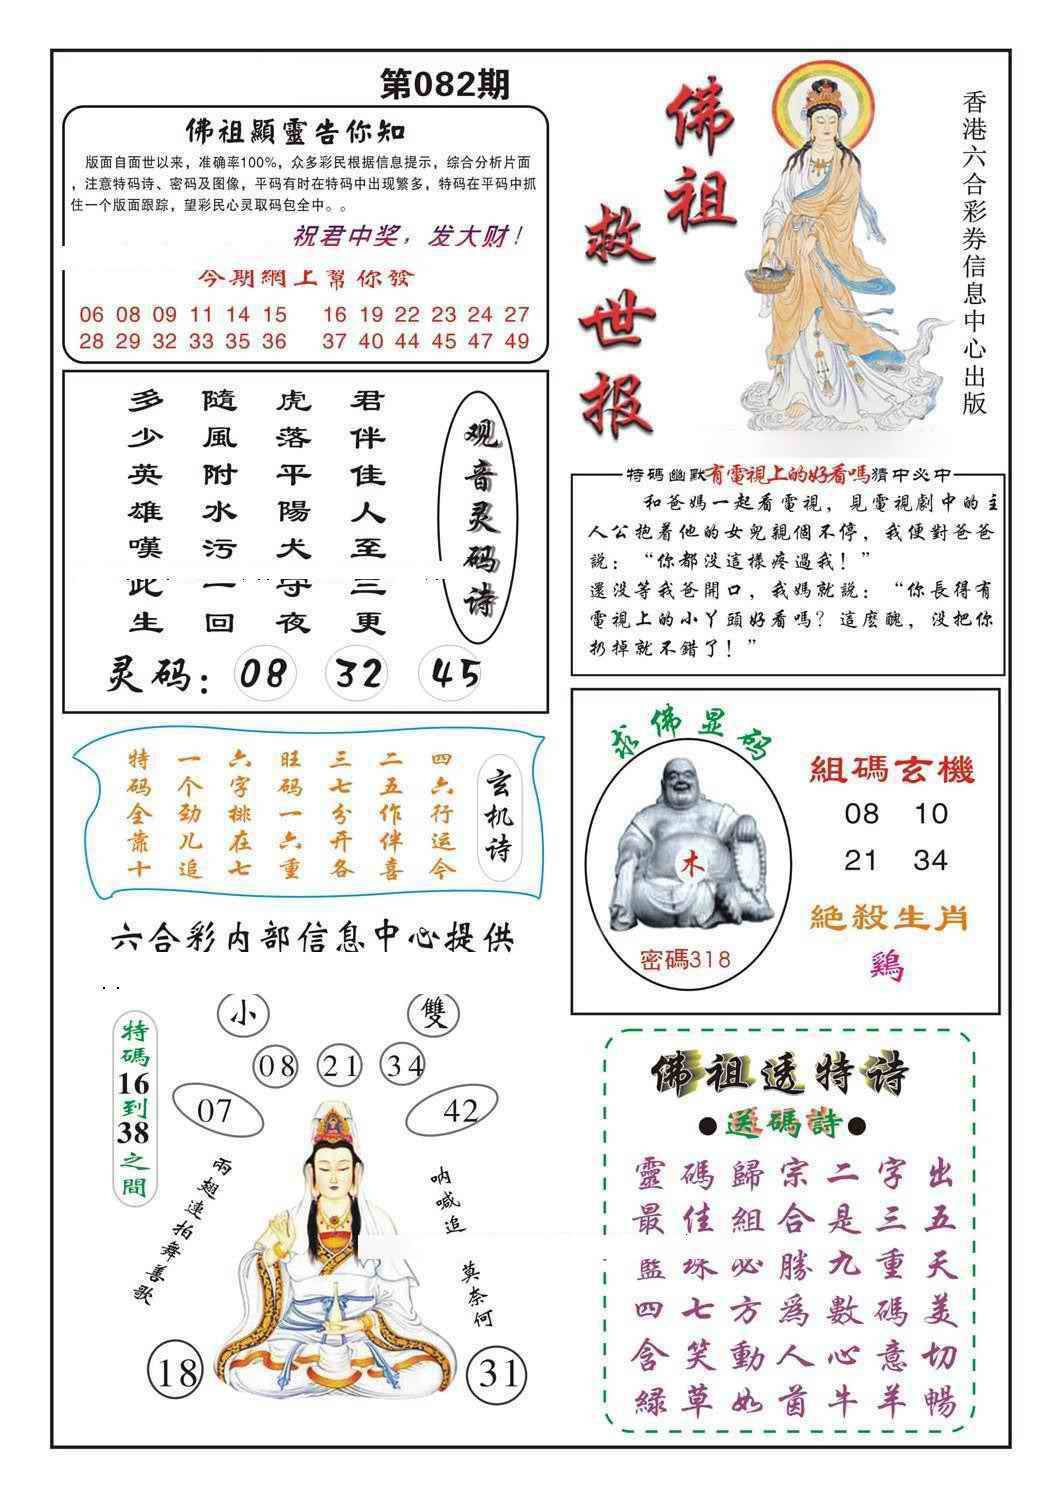 第082期
佛祖顯靈告你知
版面自面世以来，准确率100%，众多彩民根据信息提示，综合分析片面
，注意特码诗、密码及图像，平码有时在特码中出现繁多，特码在平码中抓
住一个版面跟踪，望彩民心灵取码包全中。。
祝君中奖，发大财！
今期網上幫你發
06 08 09 11 14 15 16 19 22 23 24 27
28 29 32 33 35 36 37 40 44 45 47 49
佛祖
救世报
香港六合彩券信息中心出版
观音灵码诗
君伴佳人至三更
虎落平陽犬守夜
隨風附水污一回
多少英雄嘆此生
灵码：08 32 45
特碼幽默有電視上的好看嗎猜中必中
和爸媽一起看電視，見電視劇中的主
人公抱着他的女兒親個不停，我便對爸爸
説：“你都没這樣疼過我！”
還没等我爸開口，我媽就説：“你長得有
電視上的小丫頭好看嗎？這麽醜，没把你
扔掉就不錯了！”
玄机诗
四六行运令
二五作伴喜
三七分开各
旺码一六重
六字排在七
一个劲儿追
特码全靠十
六合彩内部信息中心提供
求佛显码
木
密碼318
組碼玄機
08 10
21 34
絶殺生肖
鷄
特碼16到38之間
小
雙
08 21 34
07
42
兩翅連拍舞善歌
呐喊追
莫奈何
18
31
佛祖透特诗
●送碼詩●
靈碼歸宗二字出
最佳組合是三五
藍珠必勝九重天
四七方爲數碼美
含笑動人心意切
緑草如茵牛羊暢